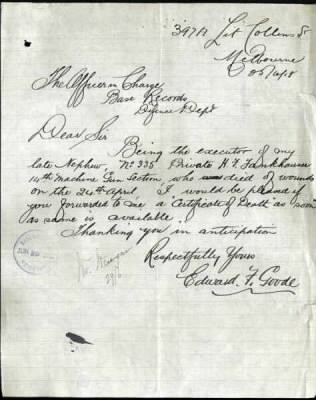 397A Lit Collins St
Melbourne
The Officer in Charge
Base Records
Defence Dept
Dear Sir
Being the executor of my
late Nephew, No 335 Private H. F. Fankhauser
14th Machine Gun Section, who died of wounds
on the 24th April. I would be pleased if
you forwarded to me a Certificate of Death as soon
as same is available.
Thanking you in anticipation
Respectfully Yours
Edward F. Goode